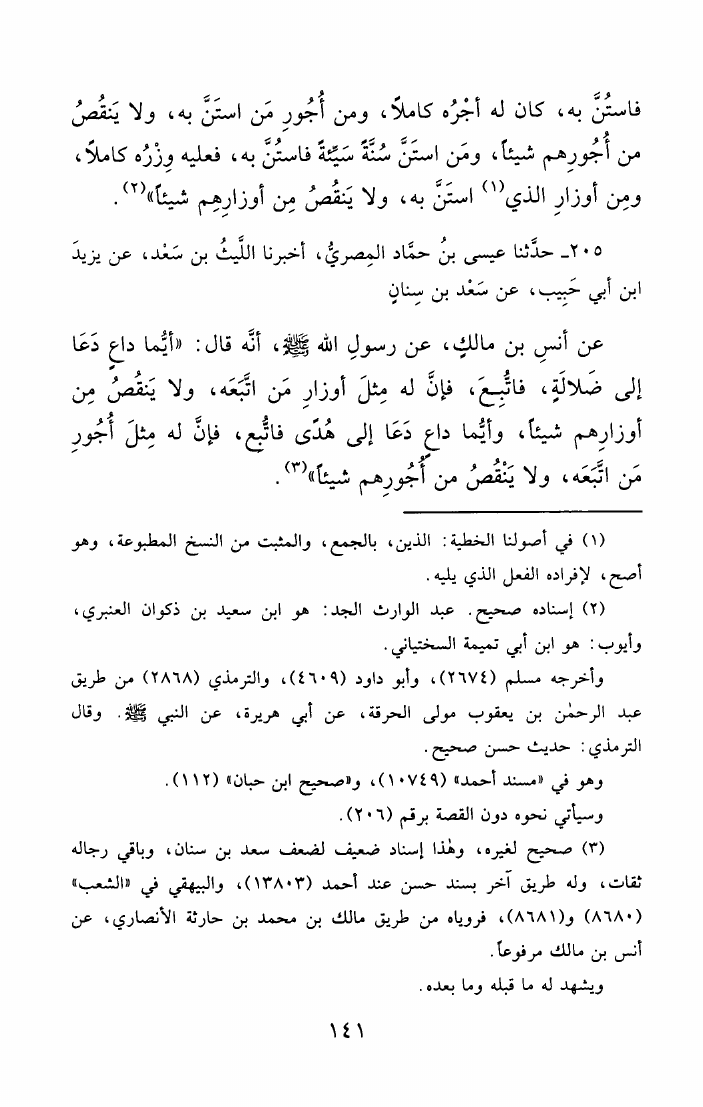 فاستُنَّ به، كان له أجْرُه كاملاً، ومن أُجُورِ مَن استَنَّ به، ولا يَنقُصُ
من أُجُورِهم شيئاً، ومَن استَنَّ سُنَّةً سَيِّئةً فاستُنَّ به، فعليه وِزْرُه كاملاً،
ومِن أوزارِ الذي(١) استَنَّ به، ولا يَنقُصُ مِن أوزارِهِم شيئاً»(٢).
٢٠٥ـ حدَّثنا عيسى بنُ حمَّاد المِصريُّ، أخبرنا اللَّيثُ بن سَعْد، عن يزيدَ
ابن أبي حَبِيب، عن سَعْد بن سِنانٍ
عن أنسِ بن مالكٍ، عن رسولِ الله ﷺ، أنَّه قال: «أيُّما داعٍ دَعَا
إلى ضَلالَةٍ، فاتُّبِعَ، فإنَّ له مِثلَ أوزارِ مَن اتَّبَعَه، ولا يَنقُصُ مِن
أوزارِهم شيئاً، وأيُّما داعٍ دَعَا إلى هُدًى فاتُّبِع، فإنَّ له مِثلَ أُجُورِ
مَن اتَّبَعَه، ولا يَنْقُصُ من أُجُورِهم شيئاً»(٣).
(١) في أصولنا الخطية: الذين، بالجمع، والمثبت من النسخ المطبوعة، وهو
أصح، لإفراده الفعل الذي يليه.
(٢) إسناده صحيح. عبد الوارث الجد: هو ابن سعيد بن ذكوان العنبري،
وأيوب: هو ابن أبي تميمة السختياني.
وأخرجه مسلم (٢٦٧٤)، وأبو داود (٤٦٠٩)، والترمذي (٢٨٦٨) من طريق
عبد الرحمٰن بن يعقوب مولى الحرقة، عن أبي هريرة، عن النبي ﷺ. وقال
الترمذي: حديث حسن صحيح.
وهو في «مسند أحمد» (١٠٧٤٩)، و«صحيح ابن حبان» (١١٢).
وسيأتي نحوه دون القصة برقم (٢٠٦).
(٣) صحيح لغيره، وهٰذا إسناد ضعيف لضعف سعد بن سنان، وباقي رجاله
ثقات، وله طريق آخر بسند حسن عند أحمد (١٣٨٠٣)، والبيهقي في «الشعب»
(٨٦٨٠) و(٨٦٨١)، فروياه من طريق مالك بن محمد بن حارثة الأنصاري، عن
أنس بن مالك مرفوعاً.
ويشهد له ما قبله وما بعده.
١٤١